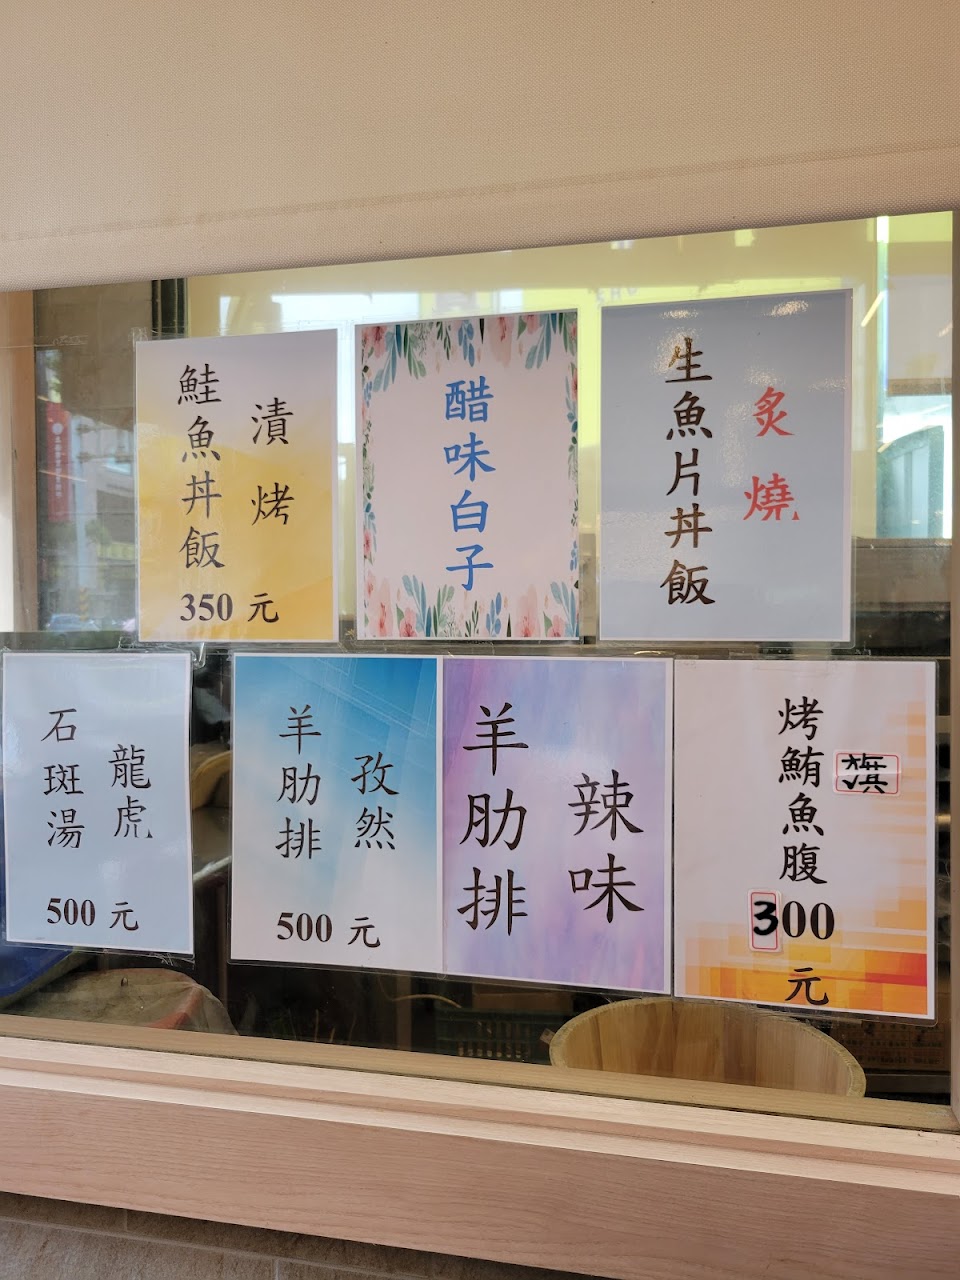 漬烤
鮭魚丼飯
350 元
醋味白子
炙燒
生魚片丼飯
龍虎
石斑湯
500 元
孜然
羊肋排
500 元
辣味
羊肋排
旗
烤鮪魚腹
300
元